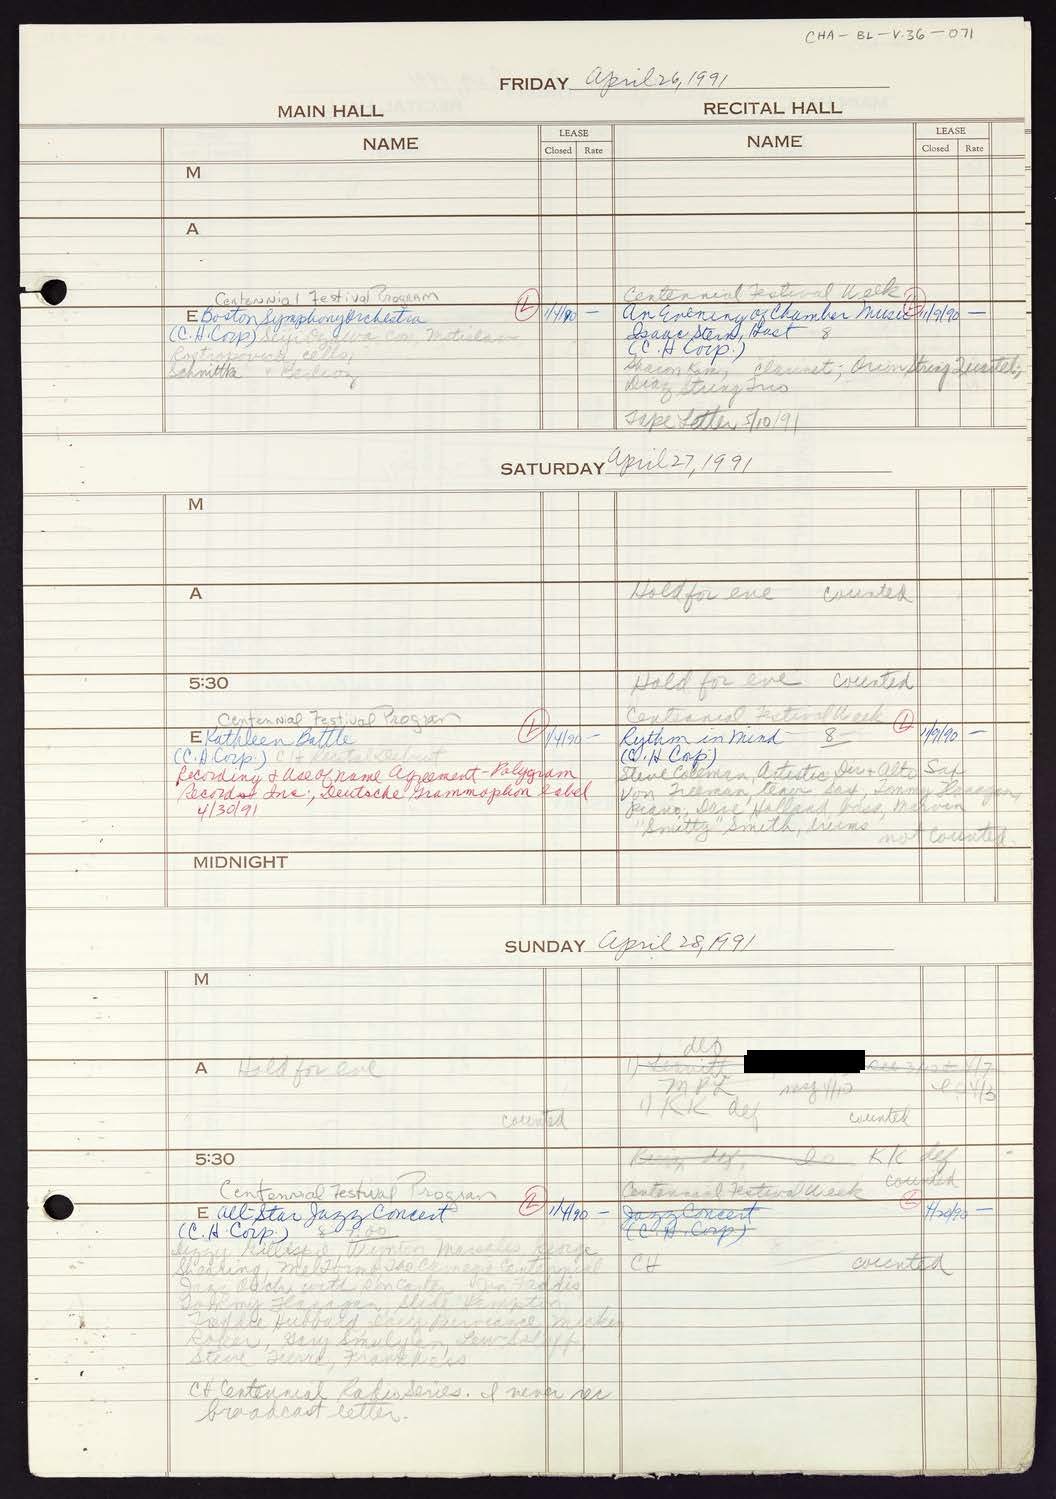 CHA-BL-V.36-071
FRIDAY April 26, 1991
MAIN HALL
RECITAL HALL
NAME
LEASE
Closed Rate
NAME
LEASE
Closed Rate
M
A
Centennial Festival Program
E Boston Symphony Orchestra L 1/4/90 -
(C.H. Corp) Seiji Ozawa con, Mstislav
Rostropovich cello,
Schnittke + Berlioz
Centennial Festival Week
An Evening of Chamber Music L 1/9/90 -
Isaac Stern, Host 8
(C.H. Corp.)
Sharon Kam, clarinet; Orion String Quartet;
Diaz String Trio
Tape Letter 5/10/91
SATURDAY April 27, 1991
M
A
Hold for eve counted
5:30
Hold for eve counted
Centennial Festival Program
E Kathleen Battle L 1/4/90 -
(C.H Corp.) CH Recital Debut
Recording & Use of name Agreement - Polygram
Records Inc., Deutsche Grammophon label
4/30/91
Centennial Festival Week
Rythm in Mind 8 L 1/9/90 -
(C.H Corp.)
Steve Coleman, Artistic Dir + Alto Sax
Von Freeman, tenor sax, Tommy Flanagan,
piano, Dave Holland, bass, Marvin
"Smitty" Smith, drums
not counted.
MIDNIGHT
SUNDAY April 28, 1991
M
A Hold for eve
counted
def
1) Leavitt 4/7
MPL 4/10 4/3
1) KK def counted
5:30
KK def
counted
Centennial Festival Program
E All-Star Jazz Concert L 1/4/90 -
(C.H. Corp.) 8 7:00
Dizzy Gillespie, Wynton Marsalis, George
Shearing, Mel Torme, The Carnegie Centennial
Jazz Orch. with Ron Carter, Jon Faddis
Tommy Flanagan, Slide Hampton,
Freddie Hubbard, Mickey
Roker, Gary Smulyan, Lew Soloff,
Steve Turre, Frank Wess
CH Centennial Radio Series. I never rec
broadcast letter.
Centennial Festival Week
Jazz Concert L 1/20/90 -
(C.H. Corp)
CH counted